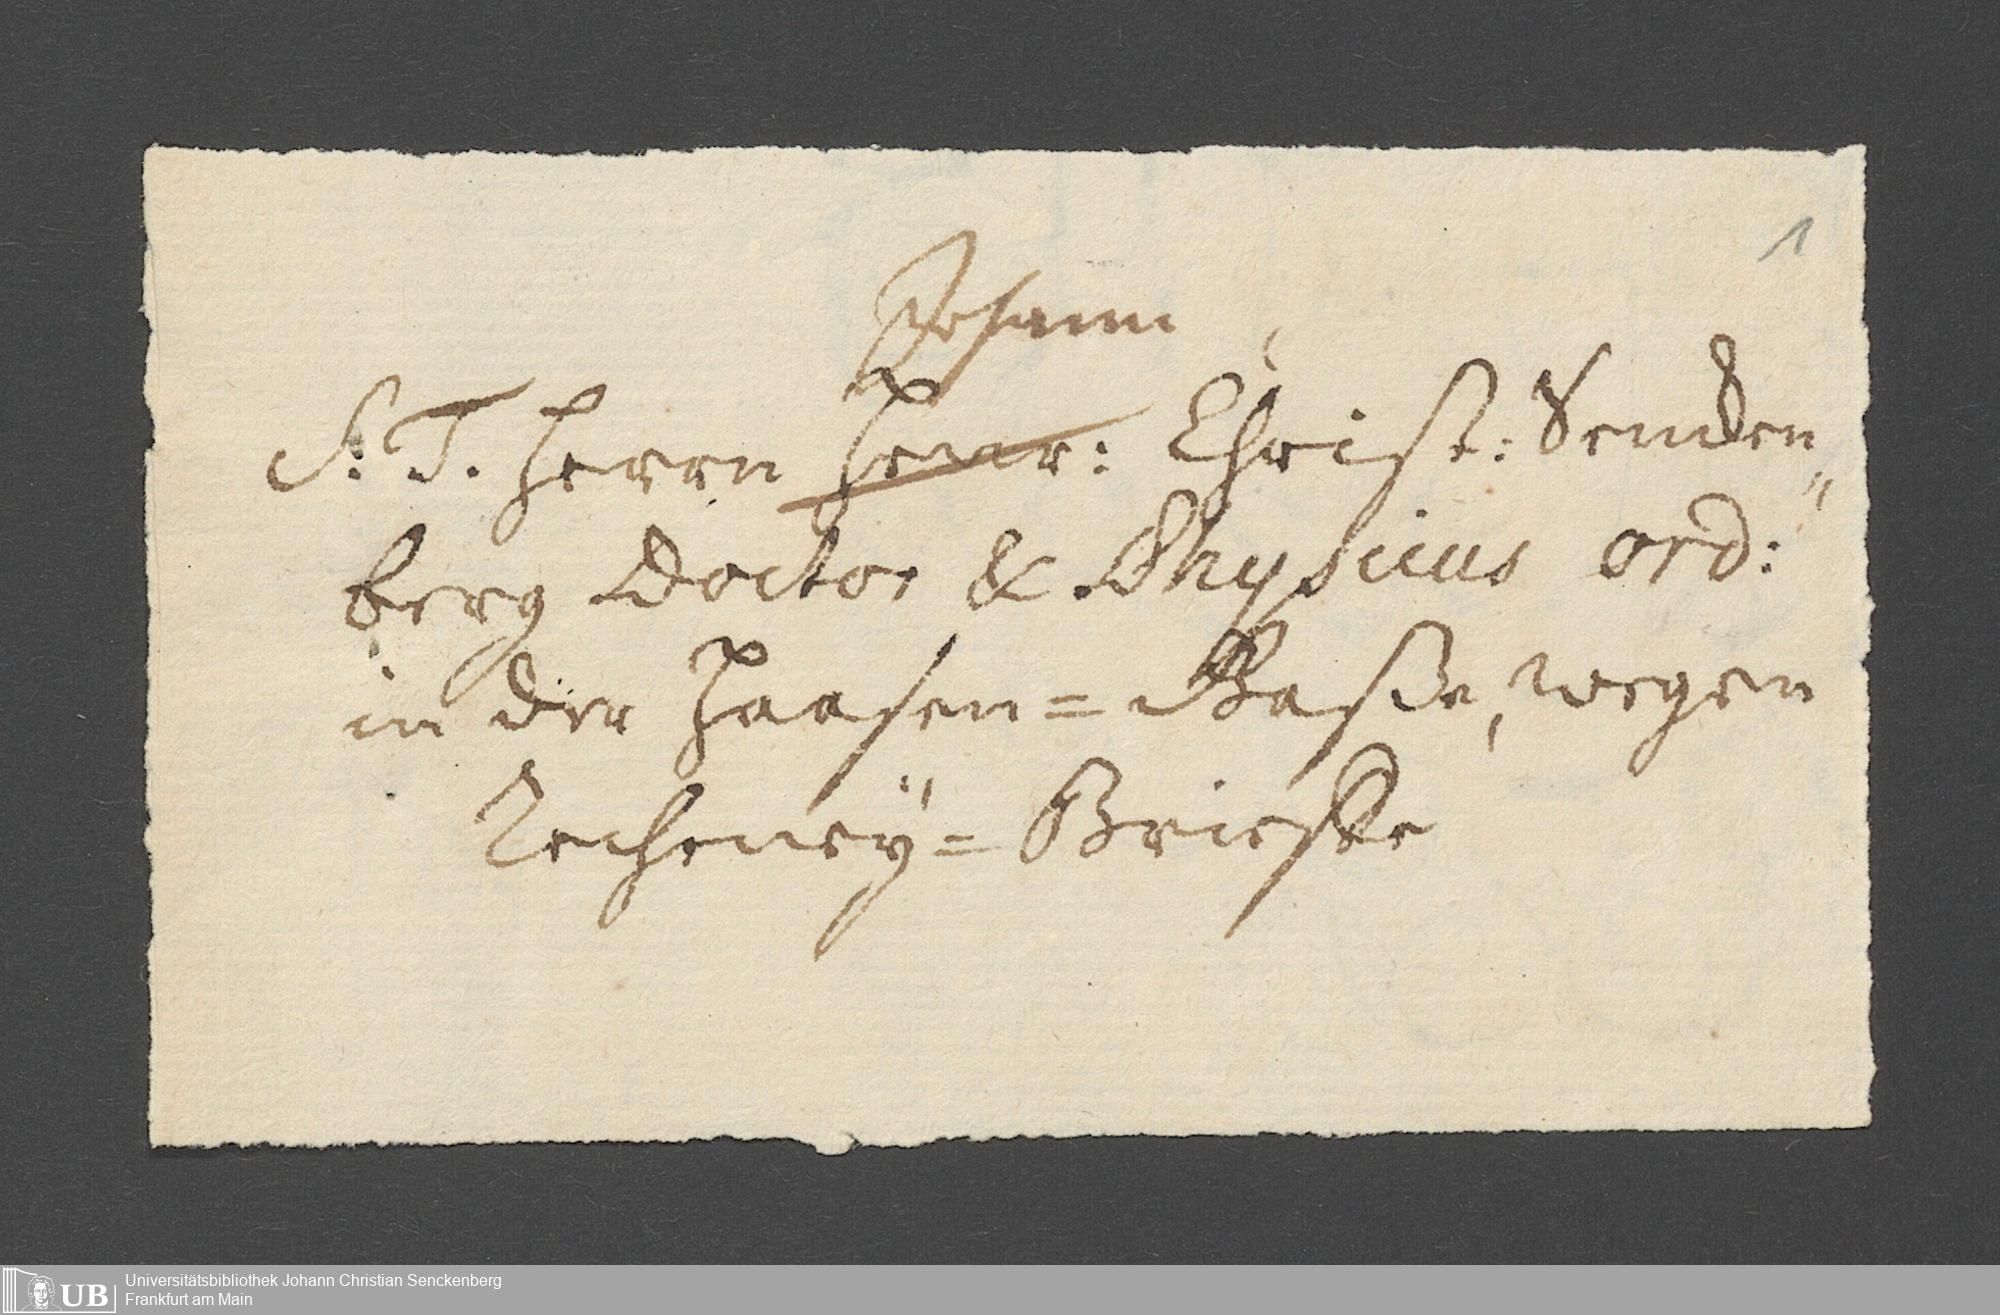 1
Johann
S. T. Herrn Henr: Christ: Senden„
berg Doctor & Physicus ord:
in der Haasen=Gaße, wegen
Recheneÿ=Brieffe
UB
Universitätsbibliothek Johann Christian Senckenberg
Frankfurt am Main